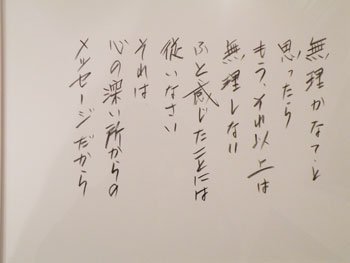 無理かなって・と
思ったら
もう、それ以上は
無理しない
ふと感じたことには
従いなさい
それは
心の深い所からの
メッセージだから